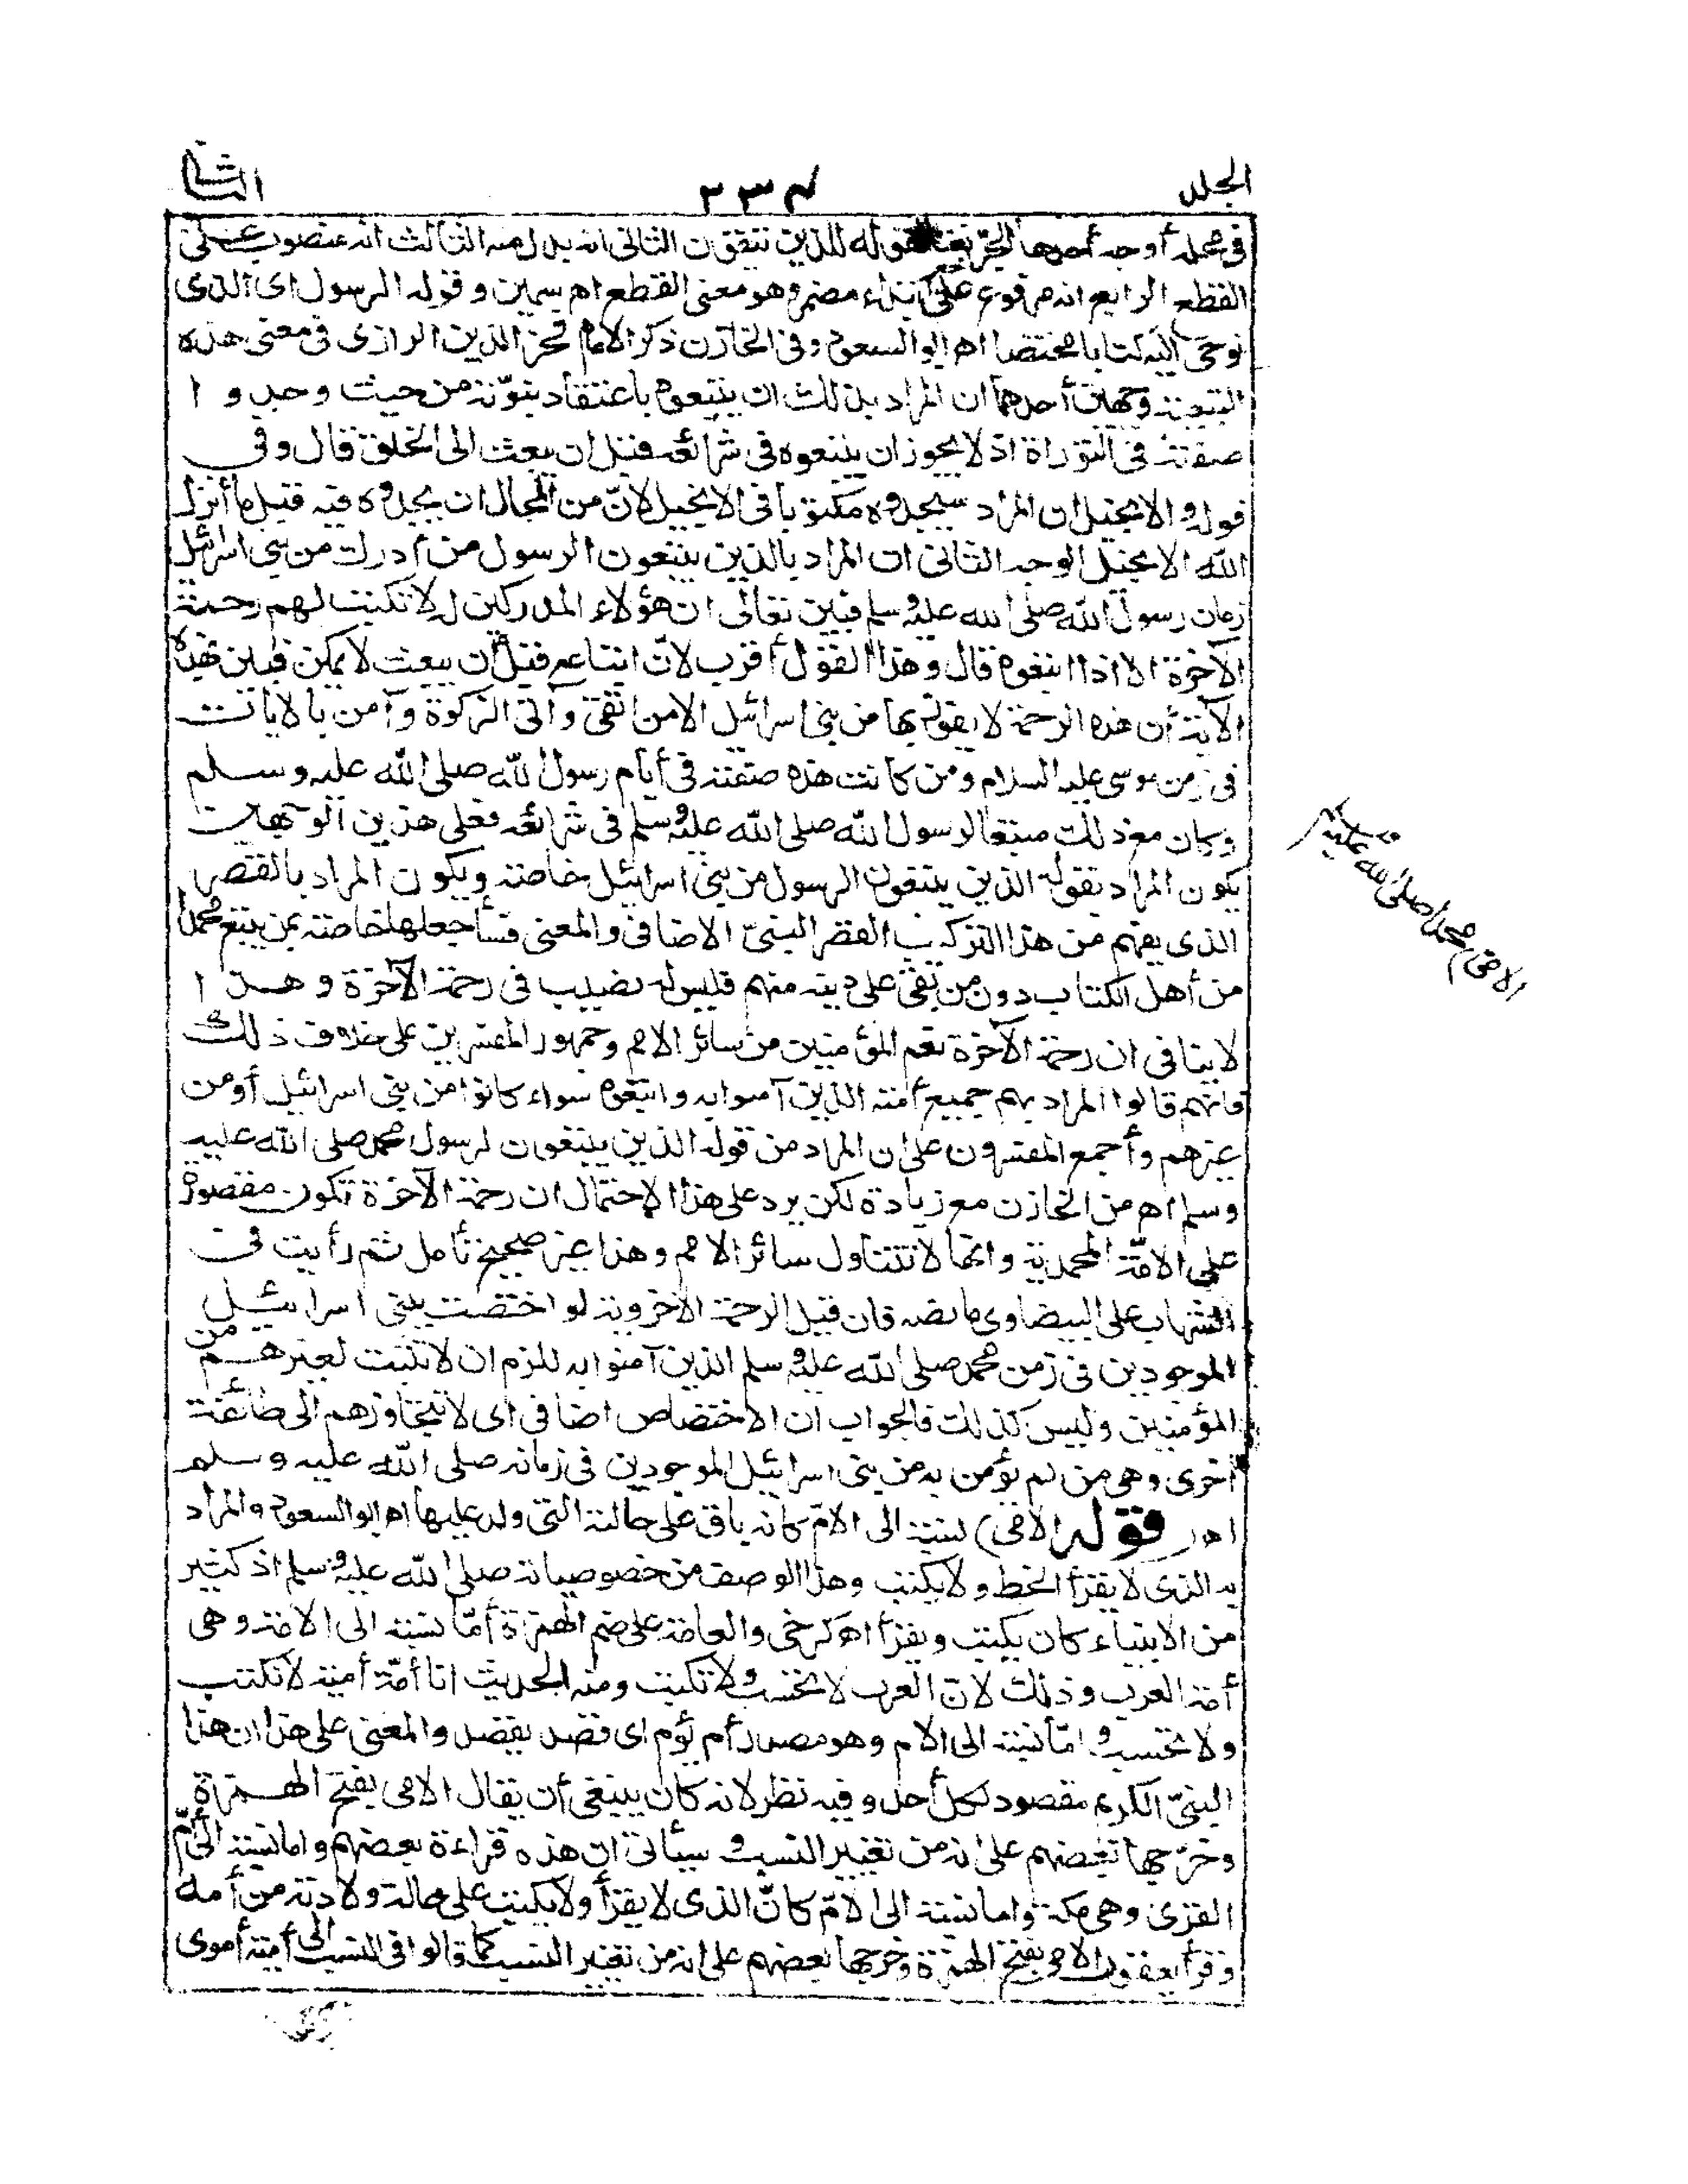 الجلد ٢٣٤ الثانى
فى محله أوجه أحدها الجر نعتا لقوله للذين يتقون الثانى انه بدل منه الثالث انه منصوب على
القطع الرابع انه مرفوع على خبر ابتداء مضمر وهو معنى القطع اهـ سمين وقوله الرسول اى الذى
نوحى اليه كتابا مختصا اهـ ابو السعود وفى الخازن ذكر الامام فخر الدين الرازى فى معنى هذه
التبعية وجهين أحدهما ان المراد بذلك ان يتبعوه باعتقاد نبوّته من حيث وجدوا
صفته فى التوراة اذ لا يجوز ان يتبعوه فى شرائعه قبل ان يبعث الى الخلق قال وفى
قوله والانجيل ان المراد سيجدونه مكتوبا فى الانجيل لانّ من المحال ان يجدوه فيه قبل ما أنزل
الله الانجيل الوجه الثانى ان المراد بالذين يتبعون الرسول من أدرك من بنى اسرائيل
زمان رسول الله صلى الله عليه وسلم فبين تعالى ان هؤلاء المدركين له لا تكتب لهم رحمة
الآخرة الا اذا اتبعوه قال وهذا القول أقرب لانّ اتباعه قبل أن يبعث لا يمكن فبين بهذه
الآية أن هذه الرحمة لا يفوز بها من بنى اسرائيل الا من اتقى وآتى الزكوة وآمن بالايات
فى زمن موسى عليه السلام ومن كانت هذه صفته فى أيام رسول الله صلى الله عليه وسلم
وكان مع ذلك متبعا لرسول الله صلى الله عليه وسلم فى شرائعه فعلى هذين الوجهين
يكون المراد بقوله الذين يتبعون الرسول من بنى اسرائيل خاصة ويكون المراد بالقصر
الذى يفهم من هذا التركيب القصر النسبىّ الاضافى والمعنى فسأجعلها خاصة بمن يتبع محمدا
من أهل الكتاب دون من بقى على دينه منهم فليس له نصيب فى رحمة الآخرة وهذا
لا ينافى ان رحمة الآخرة تعم المؤمنين من سائر الامم وجمهور المفسرين على خلاف ذلك
فانهم قالوا المراد بهم جميع أمته الذين آمنوا به واتبعوه سواء كانوا من بنى اسرائيل أو من
غيرهم وأجمع المفسرون على ان المراد من قوله الذين يتبعون الرسول محمد صلى الله عليه
وسلم اهـ من الخازن مع زيادة لكن يرد على هذا الاحتمال ان رحمة الآخرة تكون مقصورة
على الامّة المحمدية وانها لا تتناول سائر الامم وهذا غير صحيح تأمل ثم رأيت فى
الشهاب على البيضاوى ما نصه فان قيل الرحمة الاخروية لو اختصت ببنى اسرائيل
الموجودين فى زمن محمد صلى الله عليه وسلم الذين آمنوا به للزم ان لا تثبت لغيرهم من
المؤمنين وليس كذلك فالجواب ان الاختصاص اضافى اى لا تتجاوزهم الى طائفة
أخرى وهى من لم يؤمن به من بنى اسرائيل الموجودين فى زمانه صلى الله عليه وسلم
اهـ قوله (الامى) نسبة الى الامّ كانه باق على حالته التى ولد عليها اهـ ابو السعود والمراد
به الذى لا يقرأ الخط ولا يكتب وهذا الوصف من خصوصياته صلى الله عليه وسلم اذ كثير
من الانبياء كان يكتب ويقرأ اهـ كرخى والعامة على ضم الهمزة أمّا نسبة الى الامة وهى
أمة العرب وذلك لانّ العرب لا تحسب ولا تكتب ومنه الحديث انا أمّة أمية لا نكتب
ولا نحسب و امّا نسبة الى الام وهو مصدر أم يؤم اى قصد يقصد والمعنى على هذا ان هذا
النبىّ الكريم مقصود لكل أحد وفيه نظر لانه كان ينبغى أن يقال الامى بفتح الهمزة
وخرّجها بعضهم على انه من تغيير النسب وسيأتى ان هذه قراءة بعضهم واما نسبة الى أمّ
القرى وهى مكة واما نسبة الى الامّ كانّ الذى لا يقرأ ولا يكتب على حالة ولادته من أمه
وقرأ يعقوب الامى بفتح الهمزة وخرجها بعضهم على انه من تغيير النسب كما قالوا فى النسب الى أمية أموى
الامى محمدا صلى الله عليه وسلم